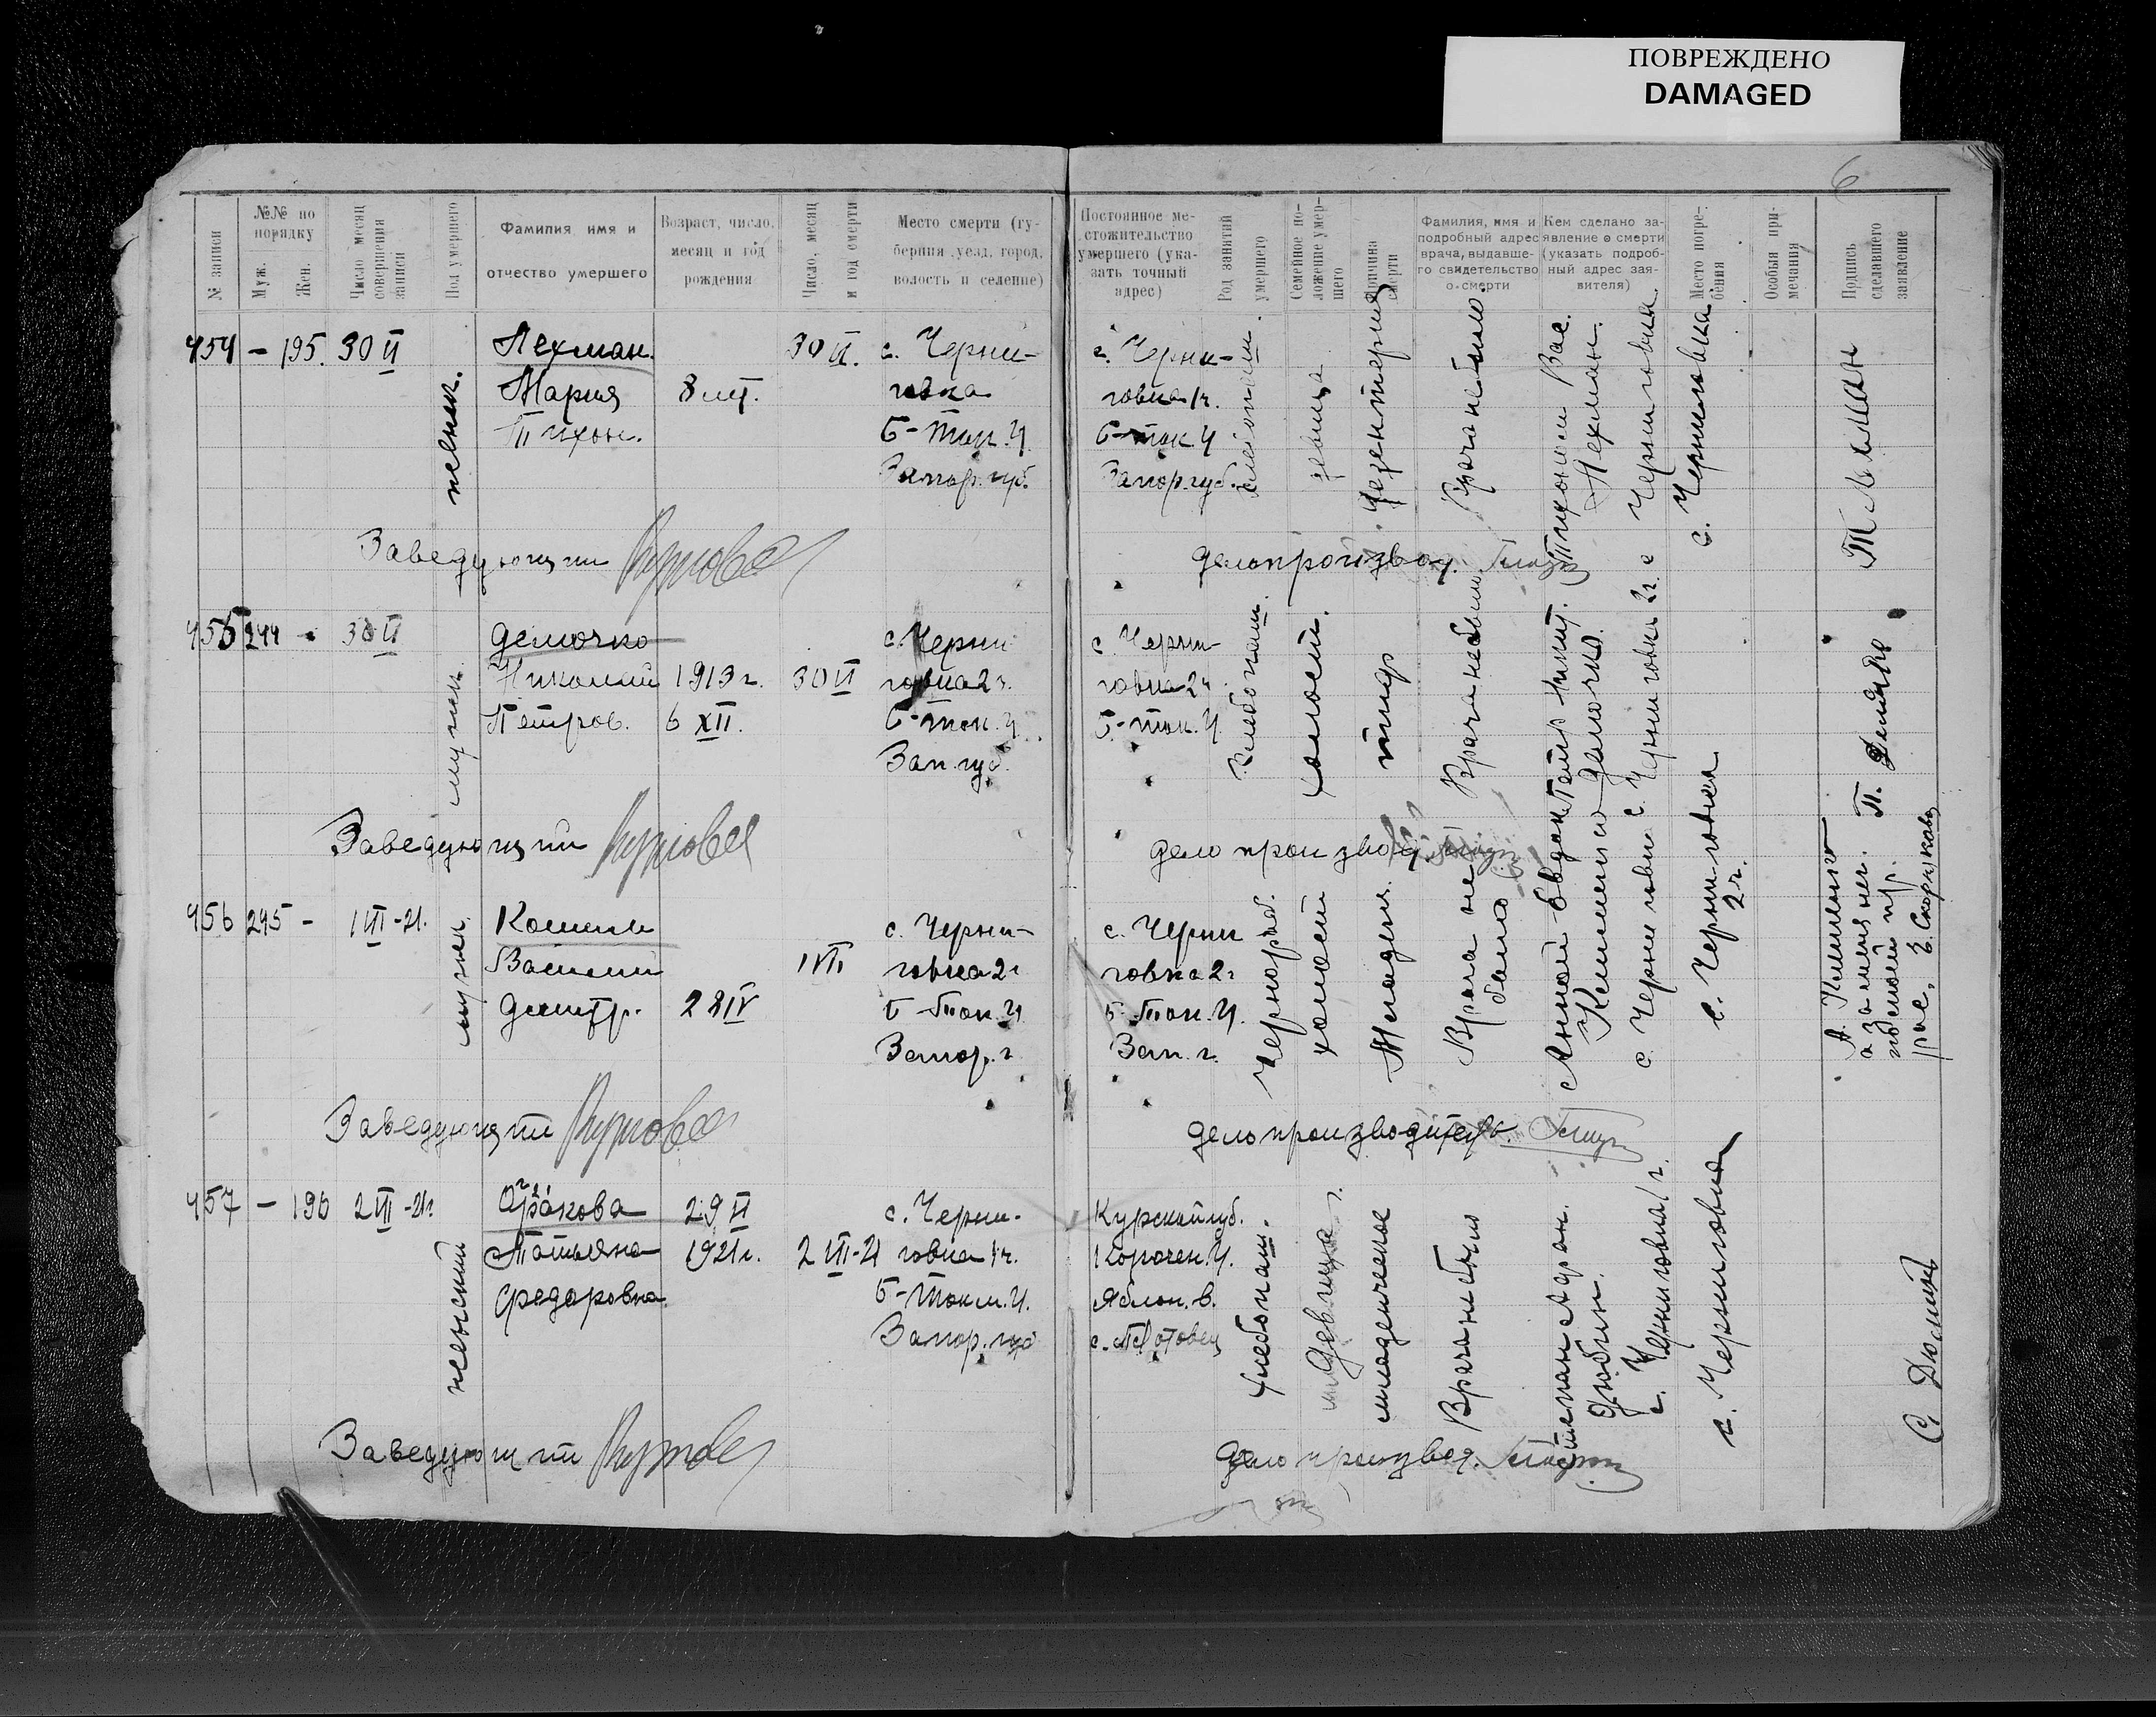 ПОВРЕЖДЕНО
DAMAGED
6
№ записи
№№ по порядку
Муж.
Жен.
Число месяц совершения записи
Пол умершего
Фамилия имя и отчество умершего
Возраст, число, месяц и год рождения
Число, месяц и год смерти
Место смерти (губерния, уезд, город, волость и селение)
Постоянное местожительство умершего (указать точный адрес)
Род занятий умершего
Семейное положение умершего
Причина смерти
Фамилия, имя и подробный адрес врача, выдавшего свидетельство о смерти
Кем сделано заявление о смерти (указать подробный адрес заявителя)
Место погребения
Особыя примечания
Подпись сделавшего заявление
454 – 195. 30 VI
женск.
Лехман.
Мария
Тихон.
8 лет.
30 VI.
с. Черни-
говка
Б-Ток. У.
Запор. губ.
с. Черни-
говка 1ч.
Б-ток. У
Запор. губ.
хлебопаш.
девица
Дезентерия
Врача не было
Тихоном Вас.
Лехман.
с. Черниговка
с. Черниговка
Т Лехман
Заведующий
делопроизвод.
455 244 - 30 VI
мужск.
Демочко
Николай
Петров.
1913 г.
6 XII.
30 VI
с. Черни
говка 2ч.
Б-ток. У.
Зап. губ.
с. Черни-
говка 2ч
Б-ток. У.
Хлебопаш.
холост.
тиф
Врача не было
Петр Никит.
Демочко.
с. Черниговка 2ч.
с. Черниговка
2ч.
П. Демочко
Заведующий
дело производ.
456 245 – 1 VII-21.
мужск.
Василий
Дмитр.
28 IV
1 VII
с. Черни-
говка 2ч
Б-Ток. У.
Запор. г
с. Черни
говка 2ч
Б-Ток. У.
Зап. г.
Чернораб.
холост
Младенч.
Врача не
было
Анной Евдок.
с. Черниговка
Заведующий
делопроизводитель.
457 – 196 2 VII-21г.
женский
Татьяна
Федоровна
29 VI
1921г.
2 VII-21
с. Черни-
говка 1ч.
Б-Токм. У.
Запор. губ
Курской губ.
Корочен. У.
Яблон. в.
хлебопаш.
девица
младенческое
Врача не было
Степан Афон.
с. Черниговка 1ч.
с. Черниговка
Заведующий
дело производ.